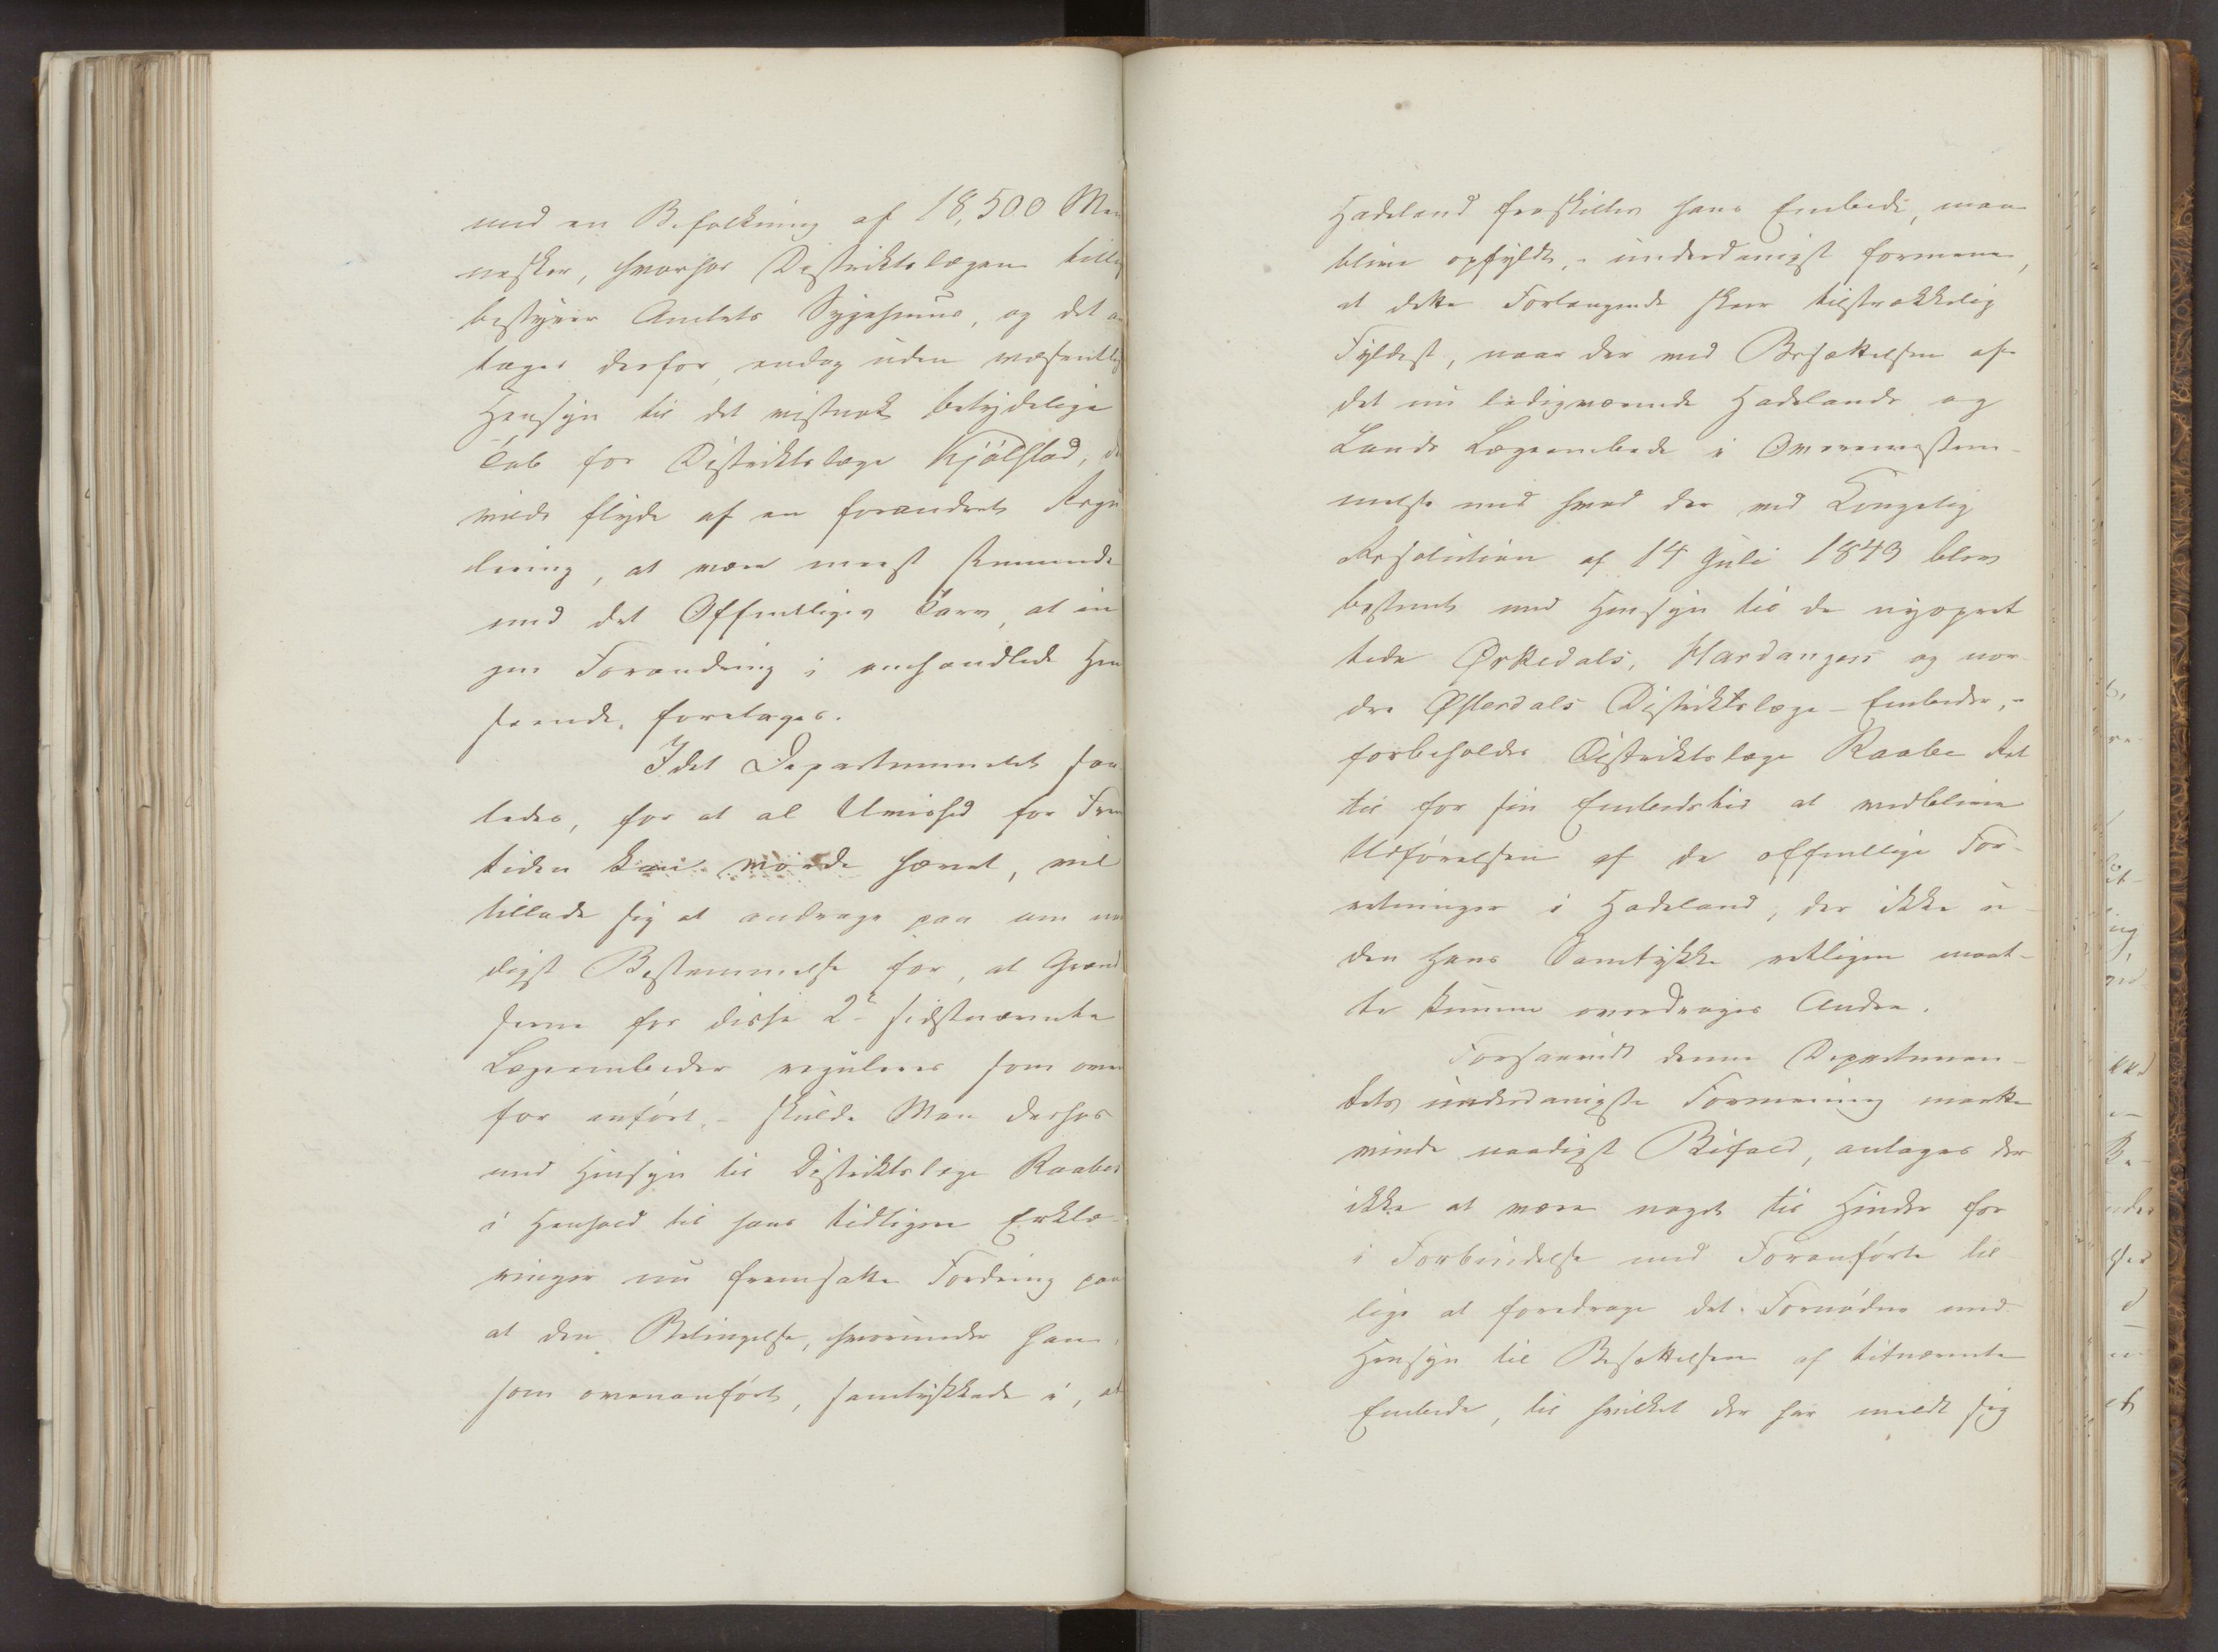 med en Befolkning af 18,500 Men
nesker, hvorhos Districtslægen tillig
bestyrer Amtets Sygehuus, og det an
tages derfor, endog uden væsentlig
Hensyn til det vistnok betydelige
Tab for Distriktslæge Kjölstad, der
vilde flyde af en forandret Regu
lering, at være meest stemmende
med det Offentliges Tarv, at in
gen Forandring i omhandlede Hen
seende foretages.
Idet Departementet saa
ledes, for at al Uvished for Frem
tiden kan vorde hævet, vil
tillade sig at andrage paa om naa
digst Bestemmelse for, at Grænd
serne for disse 2de sidstnævnte
Lægeembeder reguleres som oven
for anfört, - skulde Man derhos
med Hensyn til Distriktslæge Raabes
i Henhold til hans tidligere Erklæ-
ringer nu fremsatte Fordring paa
at den Betingelse, hvorunder han,
som ovenanfört, samtykkede i, at
Hadeland fraskilles hans Embede, maa
blive opfyldt, - underdanigst formene,
at dette Forlangende skeer tilstrækkelig
Fyldest, naar der med Besættelsen af
det nu ledigværende Hadelands og
Lands Lægeembede i Overeensstem-
melse med hvad der ved Kongelig
Resolution af 14 Juli 1849 blev
bestemt med Hensyn til de nyopret
tede Ørkedals, Hardangers og nor-
dre Østerdals Distriktslæge-Embeder, -
forbeholdes Distriktslæge Raabe Ret
til for sin Embedstid at vedblive
Udförelsen af de offentlige For-
retninger i Hadeland, der ikke u-
den Hans Samtykke rettligen maat-
te kunne overdrages Andre.
Forsaavidt denne Departemen-
tets underdanigste Formening maatte
vinde naadigst Bifald, antages der
ikke at være noget til Hinder for
i Forbindelse med Foranförte til
lige at foredrage det Fornödne med
Hensyn til Besættelsen af bitnævnte
Embede, til hvilket der har meldt sig